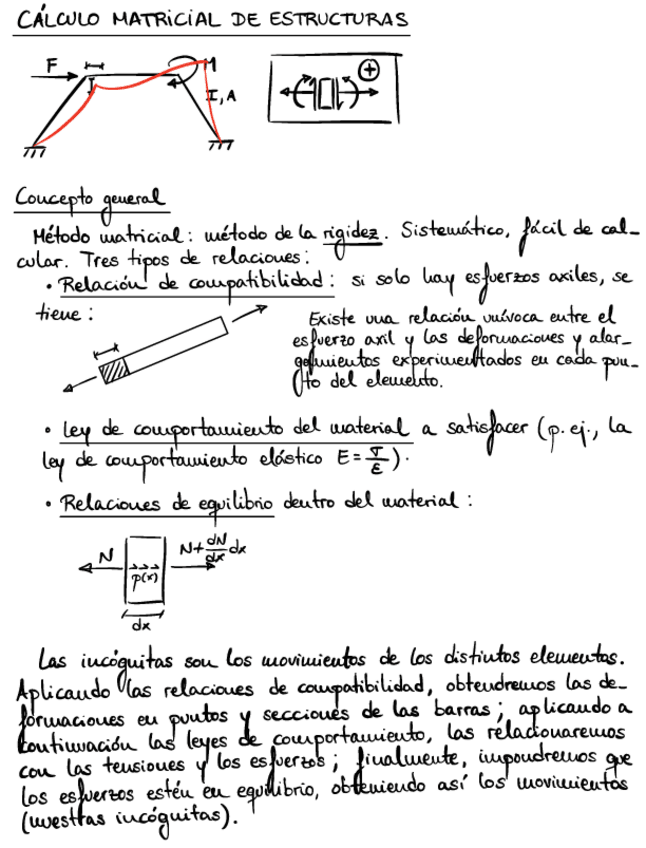 CÁLCULO MATRICIAL DE ESTRUCTURAS
F
M
I, A
+
Concepto general
Método matricial: método de la rigidez. Sistemático, fácil de cal-
cular. Tres tipos de relaciones:
• Relación de compatibilidad: si solo hay esfuerzos axiles, se
tiene:
Existe una relación unívoca entre el
esfuerzo axil y las deformaciones y alar-
gamientos experimentados en cada pun-
to del elemento.
• Ley de comportamiento del material a satisfacer (p. ej., la
ley de comportamiento elástico E = σ/ε).
• Relaciones de equilibrio dentro del material:
N
p(x)
N + dN/dx dx
dx
Las incógnitas son los movimientos de los distintos elementos.
Aplicando las relaciones de compatibilidad, obtendremos las de-
formaciones en puntos y secciones de las barras; aplicando a
continuación las leyes de comportamiento, las relacionaremos
con las tensiones y los esfuerzos; finalmente, impondremos que
los esfuerzos estén en equilibrio, obteniendo así los movimientos
(nuestras incógnitas).